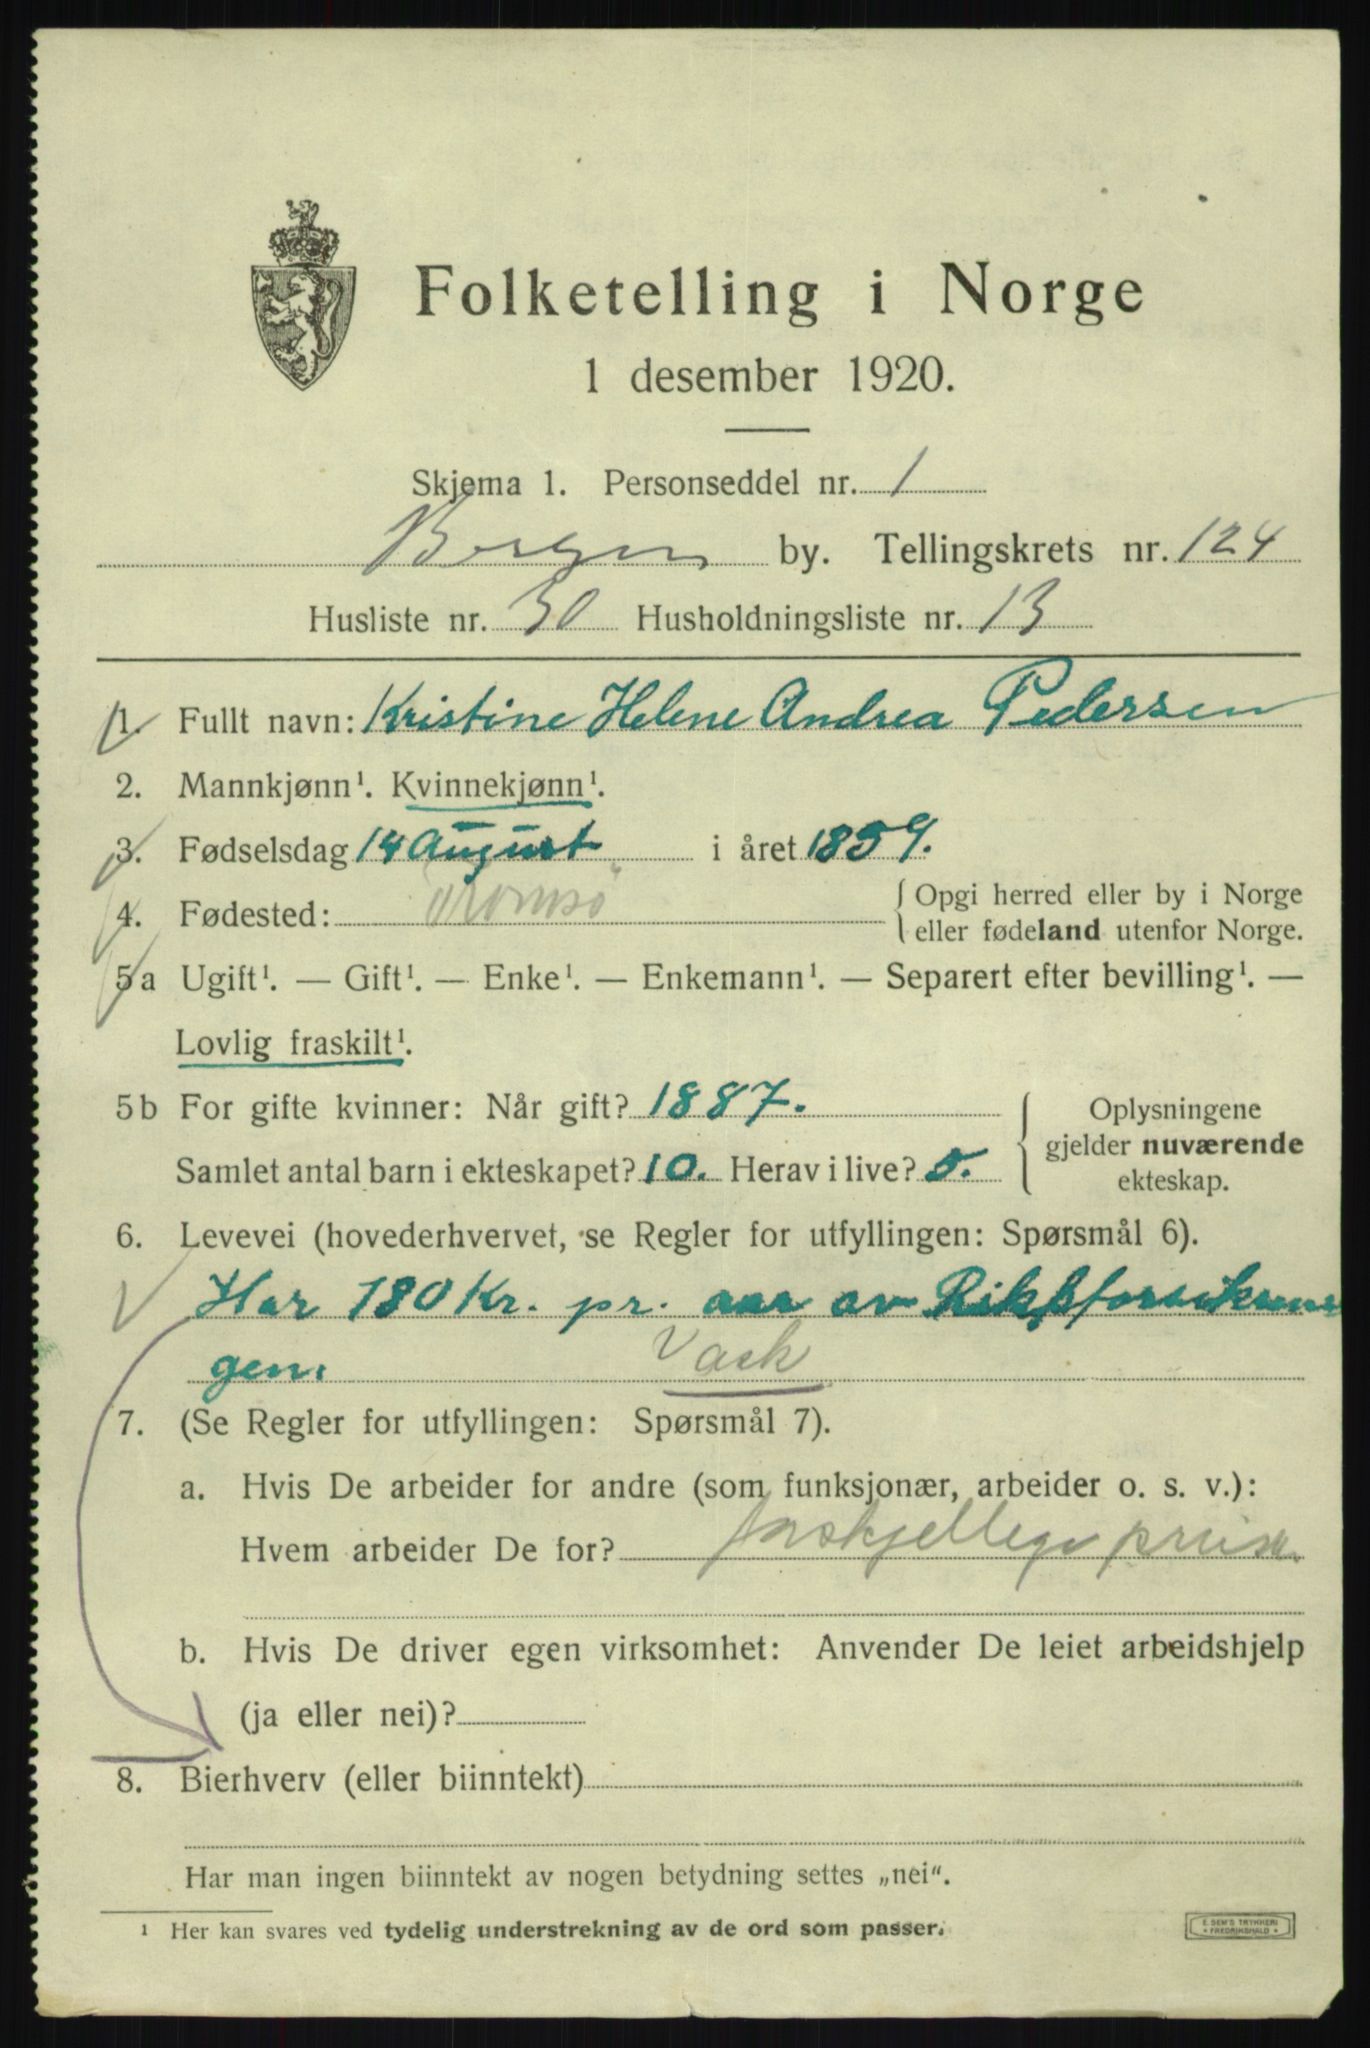 Folketelling i Norge
1 desember 1920.
Skjema 1. Personseddel nr. 1
Bergen by. Tellingskrets nr. 124
Husliste nr. 30 Husholdningsliste nr. 13
1. Fullt navn: Kristine Helene Andrea Pedersen
2. Mannkjønn¹. Kvinnekjønn¹.
3. Fødselsdag 14 August i året 1859.
4. Fødested: Tromsø { Opgi herred eller by i Norge
eller fødeland utenfor Norge.
5a Ugift¹. — Gift¹. — Enke¹. — Enkemann¹. — Separert efter bevilling¹. —
Lovlig fraskilt¹.
5b For gifte kvinner: Når gift? 1887.
Samlet antal barn i ekteskapet? 10. Herav i live? 5.
Oplysningene
gjelder nuværende
ekteskap.
6. Levevei (hovederhvervet, se Regler for utfyllingen: Spørsmål 6).
Har 180 Kr. pr. aar av
gen. Vask
7. (Se Regler for utfyllingen: Spørsmål 7).
a. Hvis De arbeider for andre (som funksjonær, arbeider o. s. v.):
Hvem arbeider De for? forskjellige
b. Hvis De driver egen virksomhet: Anvender De leiet arbeidshjelp
(ja eller nei)?
8. Bierhverv (eller biinntekt)
Har man ingen biinntekt av nogen betydning settes „nei“.
¹ Her kan svares ved tydelig understrekning av de ord som passer.
E. SEM'S TRYKKERI
• FREDRIKSHALD •